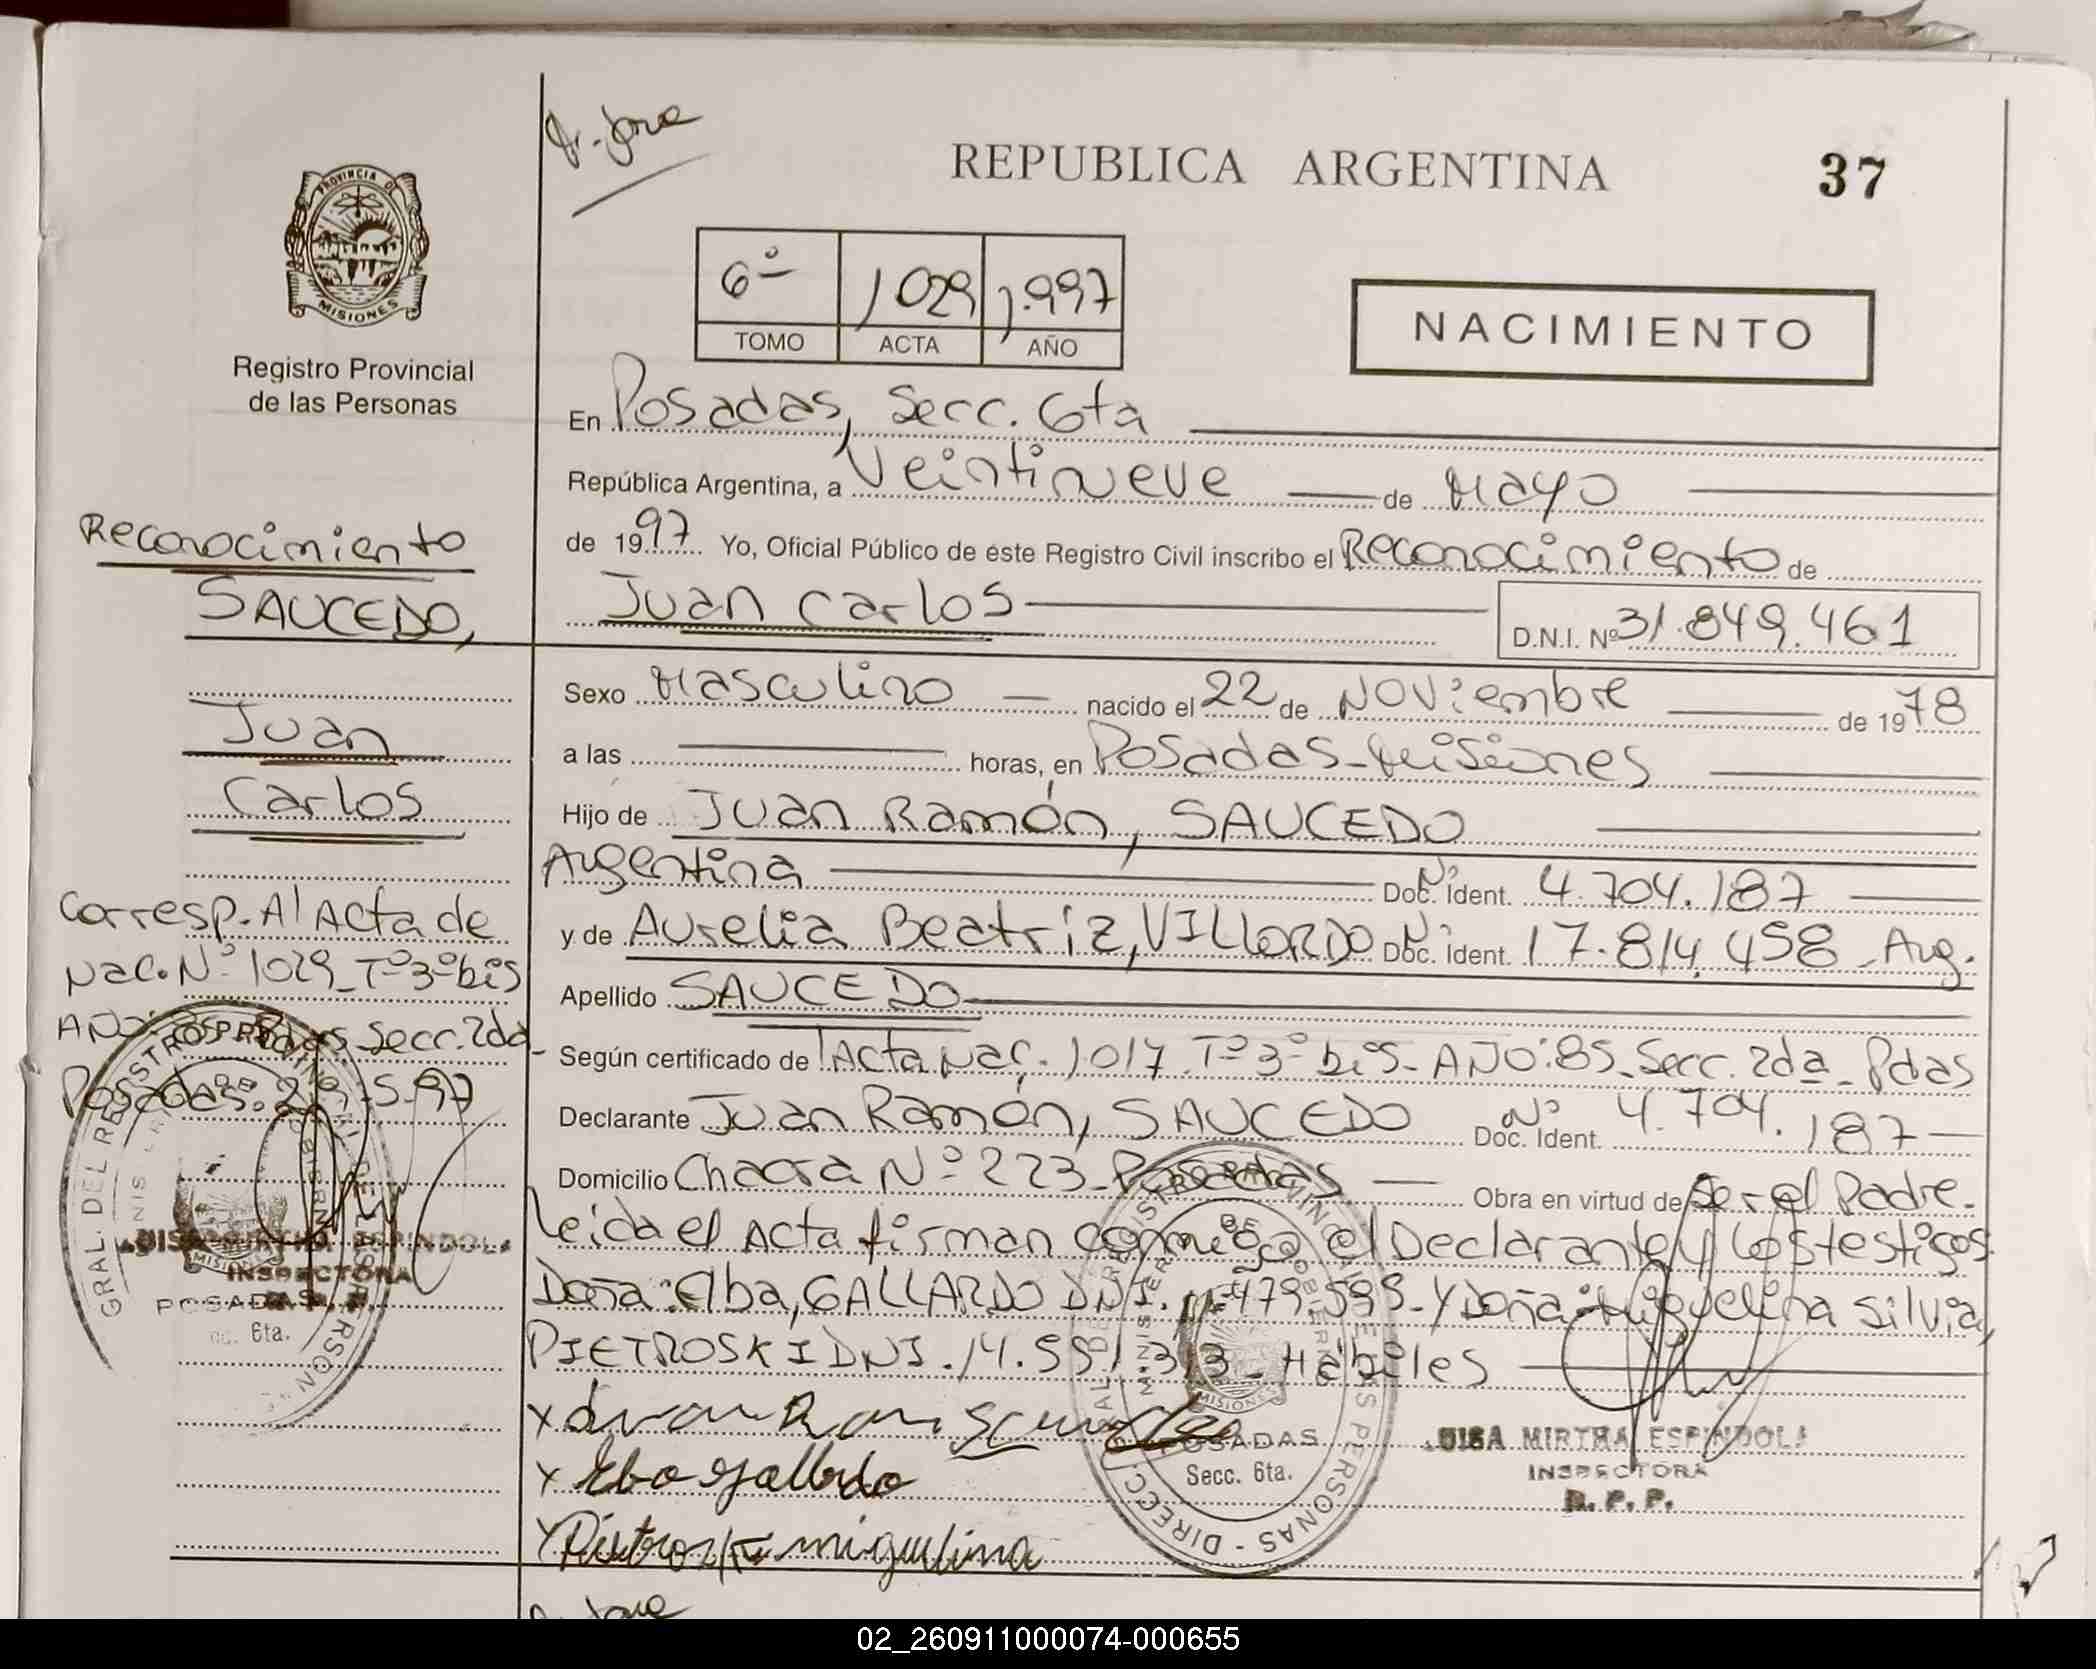 Dr. Jone
REPUBLICA ARGENTINA
37
PROVINCIA DE
MISIONES
Registro Provincial
de las Personas
6º 1029 1.997
TOMO ACTA AÑO
NACIMIENTO
En Posadas, Secc. 6ta
República Argentina, a Veintinueve de Mayo
de 1997 Yo, Oficial Público de éste Registro Civil inscribo el Reconocimiento de
Juan Carlos D.N.I. Nº 31.849.461
Sexo Masculino nacido el 22 de Noviembre de 1978
a las horas, en Posadas-Misiones
Hijo de Juan Ramón, SAUCEDO
Argentina Nº Doc. Ident. 4.704.187
y de Aurelia Beatríz, VILLORDO Nº Doc. Ident. 17.814.458 - Arg.
Apellido SAUCEDO
Según certificado de Acta Nac. 1017 Tº 3º bis - AÑO:85 - Secc. 2da - Pdas
Declarante Juan Ramón, SAUCEDO Nº Doc. Ident. 4.704.187
Domicilio Chacra Nº 223 - Posadas Obra en virtud de Ser el Padre.
Leida el Acta firman conmigo el Declarante y los testigos
Doña: Elba, GALLARDO DNI. 479.593 - Y Doña: Miguelina Silvia,
PIETROSKI DNI. 14.551.313 - Hábiles
x Juan Ramon Saucedo
x Elba Gallardo
x Pietroski miguelina
Reconocimiento
SAUCEDO,
Juan
Carlos
Corresp. Al Acta de
Nac. Nº 1029 - Tº 3º bis
AÑO: Pdas Secc. 2da -
Posadas: 29-5-97
LUISA MIRTHA ESPINDOLA
INSPECTORA
R. P. P.
GRAL. DEL REGISTRO PROVINCIAL DE LAS PERSONAS
POSADAS
Secc. 6ta.
DIRECC. GRAL. DEL REGISTRO PROVINCIAL DE LAS PERSONAS
MINISTERIO DE GOBIERNO
MISIONES
POSADAS
Secc. 6ta.
LUISA MIRTHA ESPINDOLA
INSPECTORA
R. P. P.
02_260911000074-000655